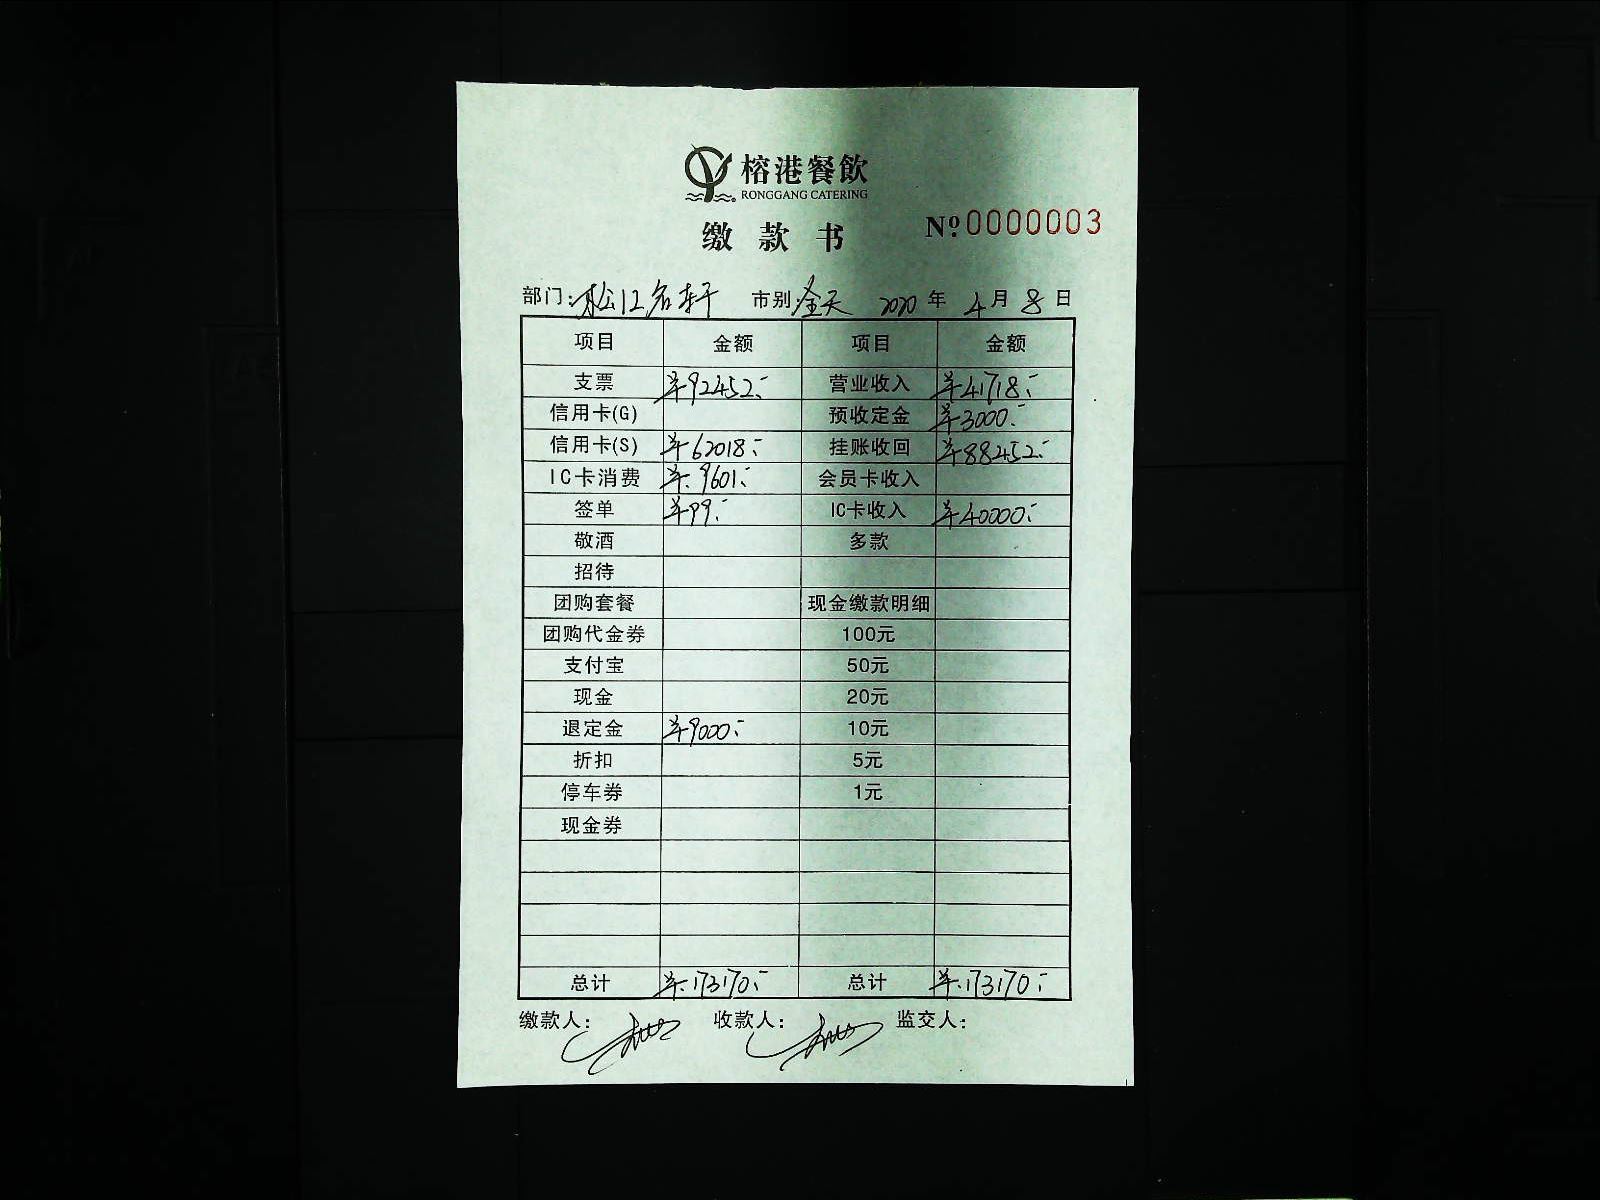 榕港餐飲
RONGGANG CATERING
缴款书 №0000003
部门:松江名轩 市别:全天 2020年4月8日
项目 金额 项目 金额
支票 ¥92452.- 营业收入 ¥41718.-
信用卡(G) 预收定金 ¥3000.-
信用卡(S) ¥62018.- 挂账收回 ¥88452.-
IC卡消费 ¥.9601.- 会员卡收入
签单 ¥99.- IC卡收入 ¥40000.-
敬酒 多款
招待
团购套餐 现金缴款明细
团购代金券 100元
支付宝 50元
现金 20元
退定金 ¥9000.- 10元
折扣 5元
停车券 1元
现金券
总计 ¥.173170.- 总计 ¥.173170.-
缴款人: 收款人: 监交人: